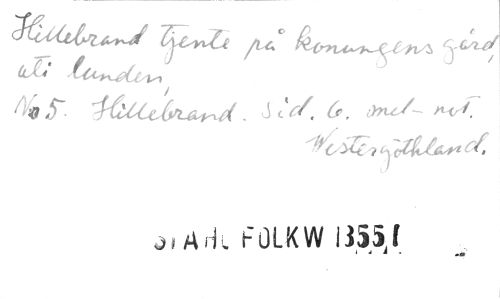 Hillebrand tjente på konungens gård,
uti lunden,
No 5. Hillebrand. Sid. 6. mel-not.
Westergöthland.
STAHL FOLKW 13551